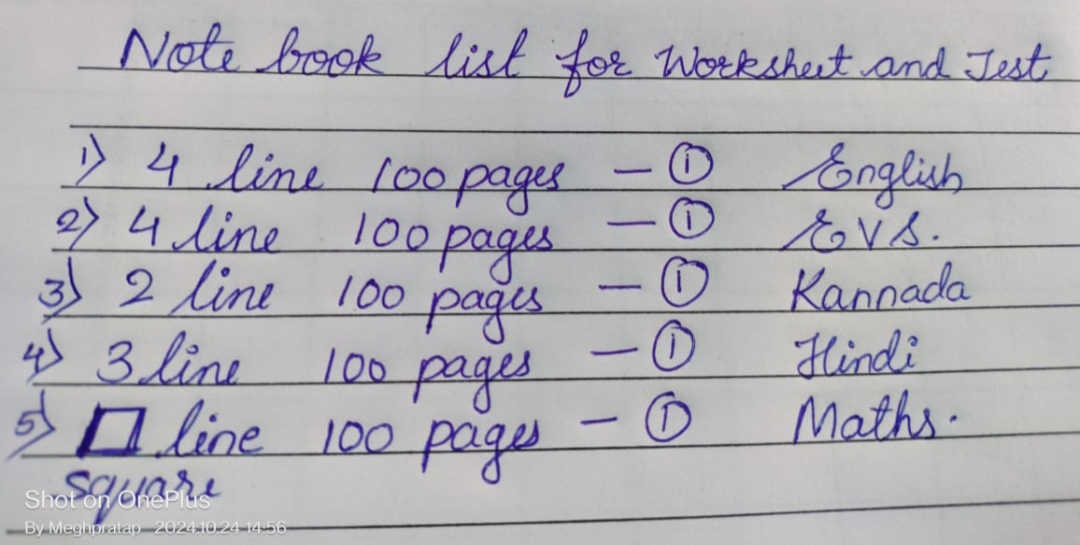 Note book list for Worksheet and Test
1) 4 line 100 pages — ① English
2) 4 line 100 pages — ① EVS.
3) 2 line 100 pages — ① Kannada
4) 3 line 100 pages — ① Hindi
5) □ line 100 pages — ① Maths.
square
Shot on OnePlus
By Meghpratap 2024.10.24 14:56